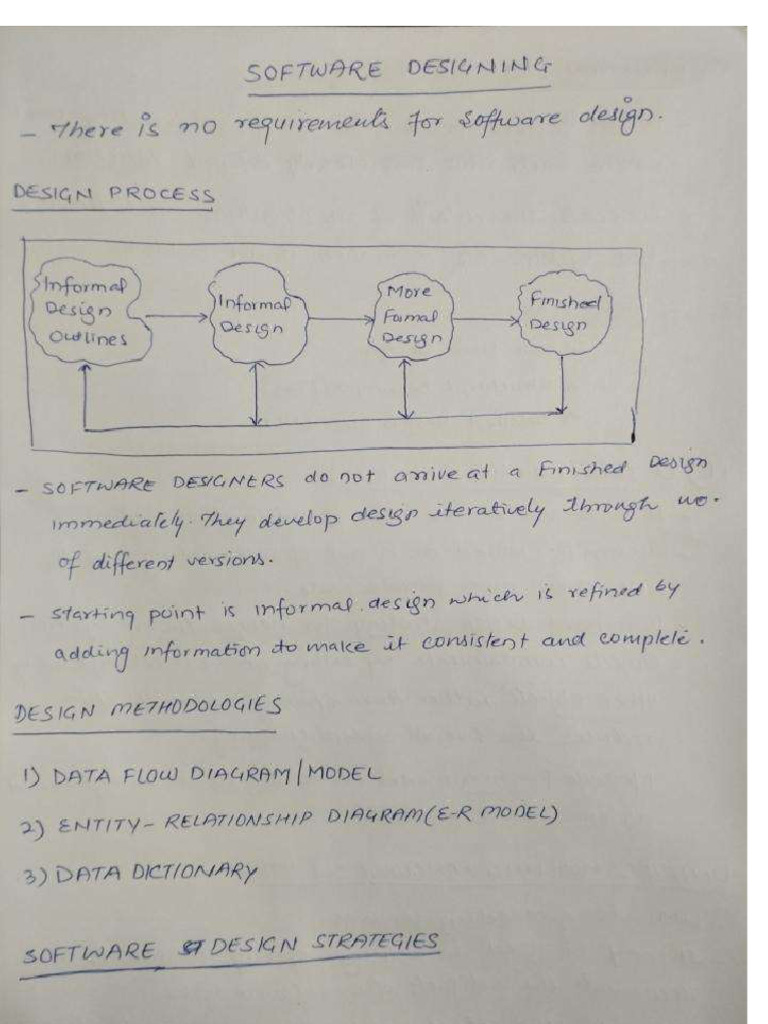 SOFTWARE DESIGNING
- There is no requirements for software design.
DESIGN PROCESS
Informal
Design
Outlines
Informal
Design
More
Formal
Design
Finished
Design
- SOFTWARE DESIGNERS do not arrive at a Finished Design
immediately. They develop design iteratively through no.
of different versions.
- Starting point is informal design which is refined by
adding information to make it consistent and complete.
DESIGN METHODOLOGIES
1) DATA FLOW DIAGRAM/MODEL
2) ENTITY-RELATIONSHIP DIAGRAM(E-R MODEL)
3) DATA DICTIONARY
SOFTWARE DESIGN STRATEGIES